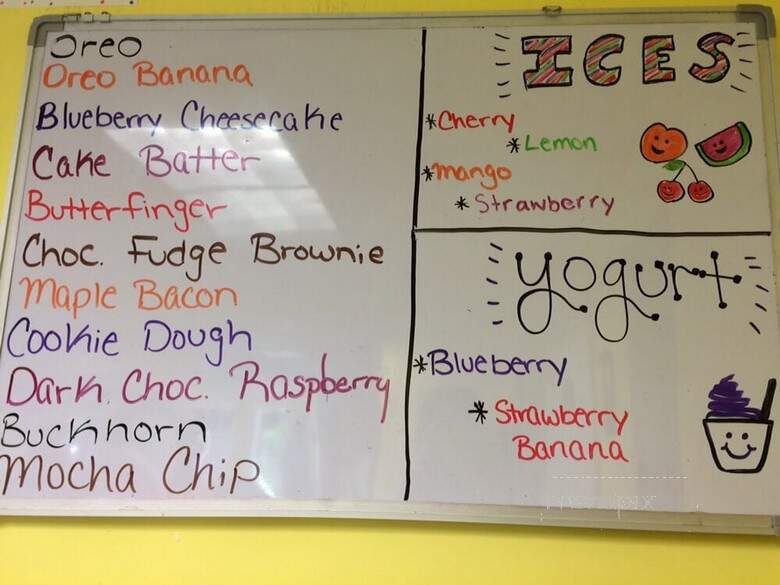 Oreo
Oreo Banana
Blueberry Cheesecake
Cake Batter
Butterfinger
Choc. Fudge Brownie
Maple Bacon
Cookie Dough
Dark Choc. Raspberry
Buckhorn
Mocha Chip
ICES
*Cherry
*Lemon
*Mango
*Strawberry
yogurt
*Blueberry
*Strawberry
Banana